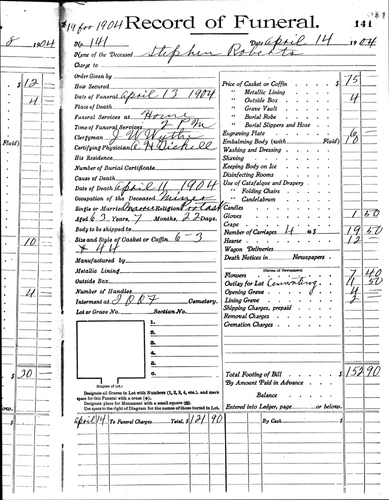 #19 for 1904
Record of Funeral.
141
8 1904
No. 141
Date April 14 1904
Name of the Deceased Stephen Roberts
Charge to
Order Given by
How Secured
Date of Funeral April 13 1904
Place of Death
Funeral Services at Home
Time of Funeral Services 2 P M
Clergyman J W
Certifying Physician A H
His Residence
Number of Burial Certificate
Cause of Death
Date of Death April 11, 1904
Occupation of the Deceased Miner
Single or Married Religion
Aged 63 Years, 7 Months, 22 Days.
Body to be shipped to
Size and Style of Casket or Coffin, 6-3
# 44
Manufactured by
Metallic Lining
Outside Box
Number of Handles
Interment at I O O F Cemetery.
Lot or Grave No. Section No.
1.
2.
3.
4.
5.
6.
(Diagram of Lot.)
Designate all Graves in Lot with Numbers (1, 2, 3, 4, etc.), and mark
space for this Funeral with a cross (+).
Designate place for Monument with a small square (□).
Use space to the right of Diagram for the names of those buried in Lot.
April 14 To Funeral Charges Total, $ 121 90
Price of Casket or Coffin $ 75
" Metallic Lining
" Outside Box 4
" Grave Vault
" Burial Robe
" Burial Slippers and Hose
Engraving Plate 6
Embalming Body (with Fluid) 10
Washing and Dressing
Shaving
Keeping Body on Ice
Disinfecting Rooms
Use of Catafalque and Drapery
" Folding Chairs
" Candelabrum
Candles
Gloves 1 50
Crape
Number of Carriages 4 $ 19 50
Hearse 12
Wagon Deliveries
Death Notices in Newspapers
(Names of Newspapers)
Flowers 7 40
Outlay for Lot 11 50
Opening Grave 4
Lining Grave 2
Shipping Charges, prepaid
Removal Charges
Cremation Charges
Total Footing of Bill $ 152 90
By Amount Paid in Advance
Balance
Entered into Ledger, page or below.
By Cash
$ 12
4
Fluid)
10
4
$ 30
low.